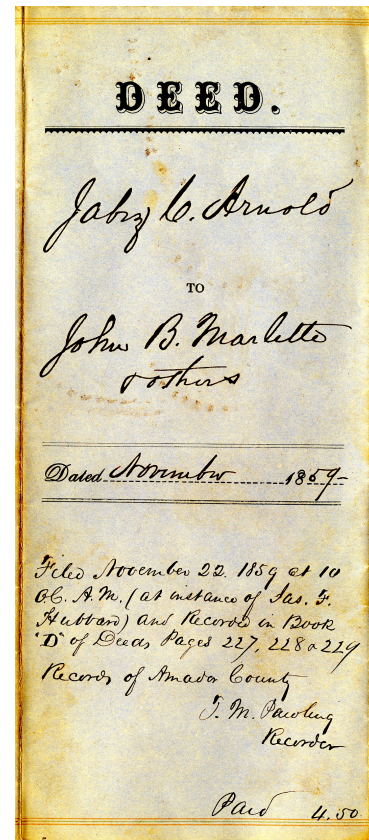 DEED.
Jabez C. Arnold
TO
John B. Marlette
& others
Dated November 1859-
Filed November 22. 1859 at 10
OC. A.M. (at instance of Jas. F.
Hubbard) and Recorded in Book
"D" of Deeds Pages 227, 228 & 229
Records of Amador County
T. M. Pawling
Recorder
Paid 4.50